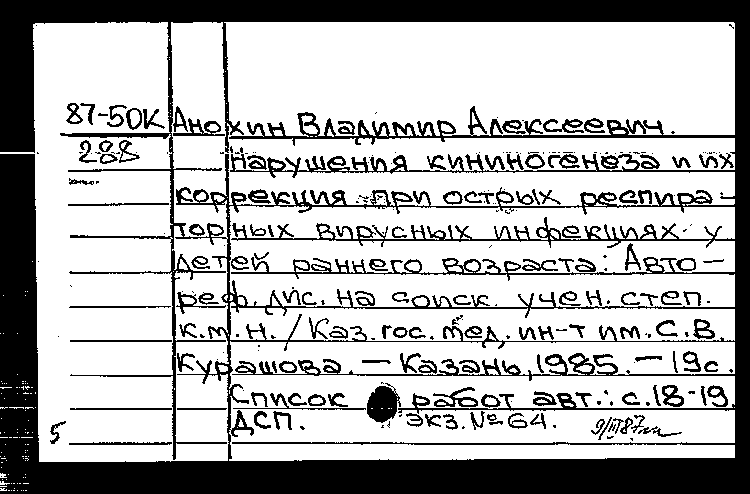 87-50К Анохин, Владимир Алексеевич.
288 Нарушения кининогенеза и их
коррекция при острых респира-
торных вирусных инфекциях у
детей раннего возраста: Авто-
реф. дис. на соиск. учен. степ.
к.м.н. / Каз. гос. мед. ин-т им. С.В.
Курашова. — Казань, 1985. — 19с.
Список работ авт.: с.18-19.
ДСП. экз. № 64. 9/III87
5